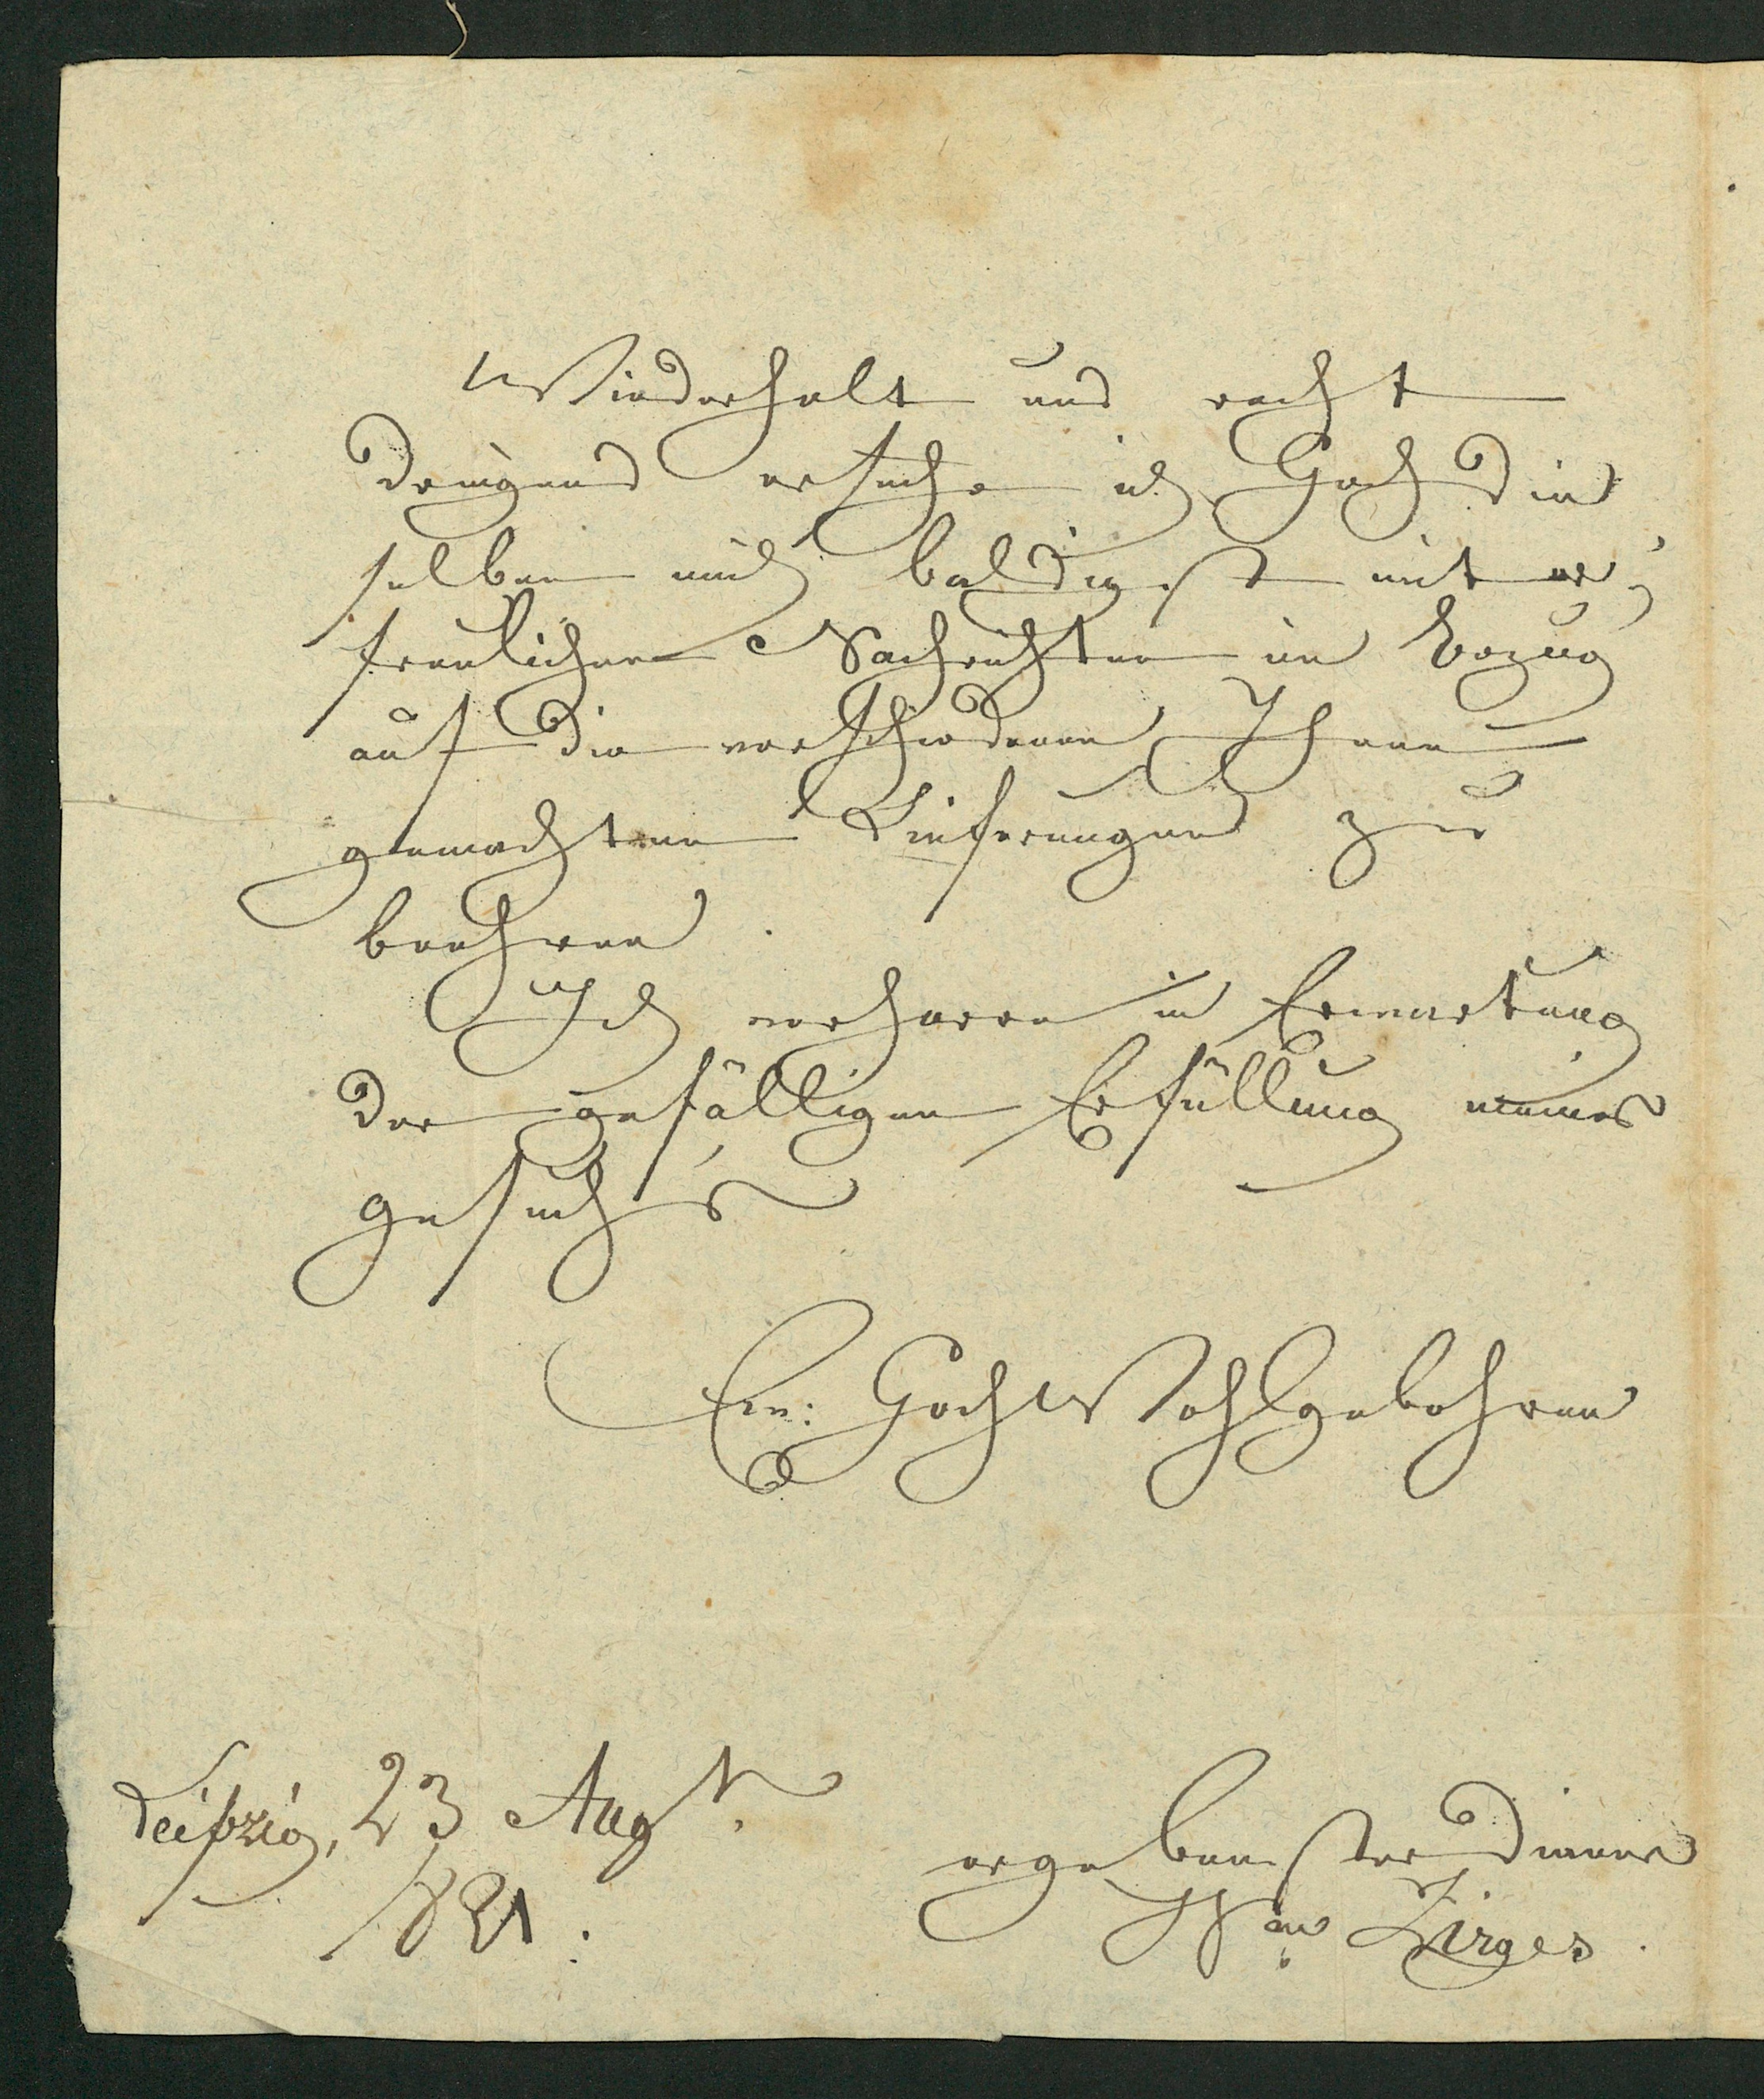 Wiederholt und recht
dringend ersuche ich Hoch Die
selben mich baldigst mit er-
freulichen Nachrichten in Bezug
auf die verschiedenen Ihnen
gemachten Lieferungen zu
beehren.
Ich verharre in Erwartung
der gefälligen Erfüllung meines
gesuchs
Ew: HochWohlgebohren
Leipzig, 23 Augt.
1821.
ergebenster Diener
Zirges.